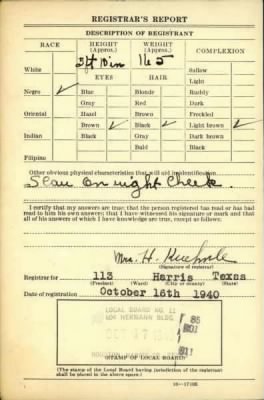 REGISTRAR'S REPORT
DESCRIPTION OF REGISTRANT
RACE HEIGHT (Approx.) WEIGHT (Approx.) COMPLEXION
5ft 10 in 165
White Sallow
EYES HAIR Light
Negro ✓ Blue Blonde Ruddy
Gray Red Dark
Oriental Hazel Brown Freckled
Brown ✓ Black ✓ Light brown ✓
Indian Black Gray Dark brown
Bald Black
Filipino
Other obvious physical characteristics that will aid identification
Scar on right Cheek.
I certify that my answers are true; that the person registered has read or has had
read to him his own answers; that I have witnessed his signature or mark and that
all of his answers of which I have knowledge are true, except as follows:
Mrs. H.
(Signature of registrar)
Registrar for 113 Harris Texas
(Precinct) (Ward) (City or county) (State)
Date of registration October 16th 1940
LOCAL BOARD NO. II
HERMANN BLDG
STAMP OF LOCAL BOARD
(The stamp of the Local Board having jurisdiction of the registrant shall
be placed in the above space.)